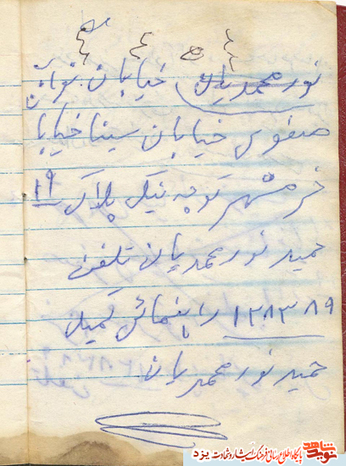 نورمحمدیان خیابان تهران
صفوی خیابان سینا خیابا
خرمشهر کوچه نیک پلاک ۱۹
حمید نورمحمدیان تلفن
۱۲۸۳۸۹
حمید نورمحمدیان
نوید شاهد
پایگاه اطلاع رسانی فرهنگ ایثار و شهادت یزد